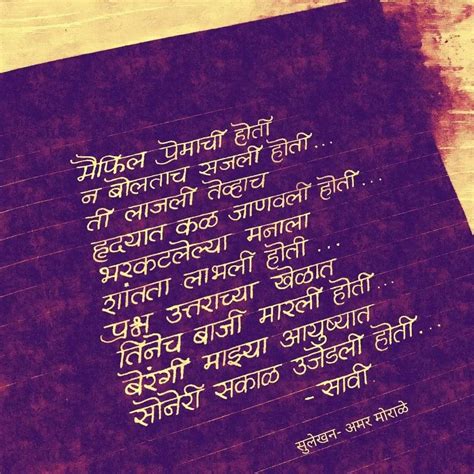 मैफिल प्रेमाची होती
न बोलताच सजली होती...
ती लाजली तेव्हाच
हृदयात कळ जाणवली होती...
भरकटलेल्या मनाला
शांतता लाभली होती...
प्रश्न उत्तराच्या खेळात
तिनेच बाजी मारली होती...
बेरंगी माझ्या आयुष्यात
सोनेरी सकाळ उजेडली होती...
- सावी
सुलेखन- अमर मोराळे